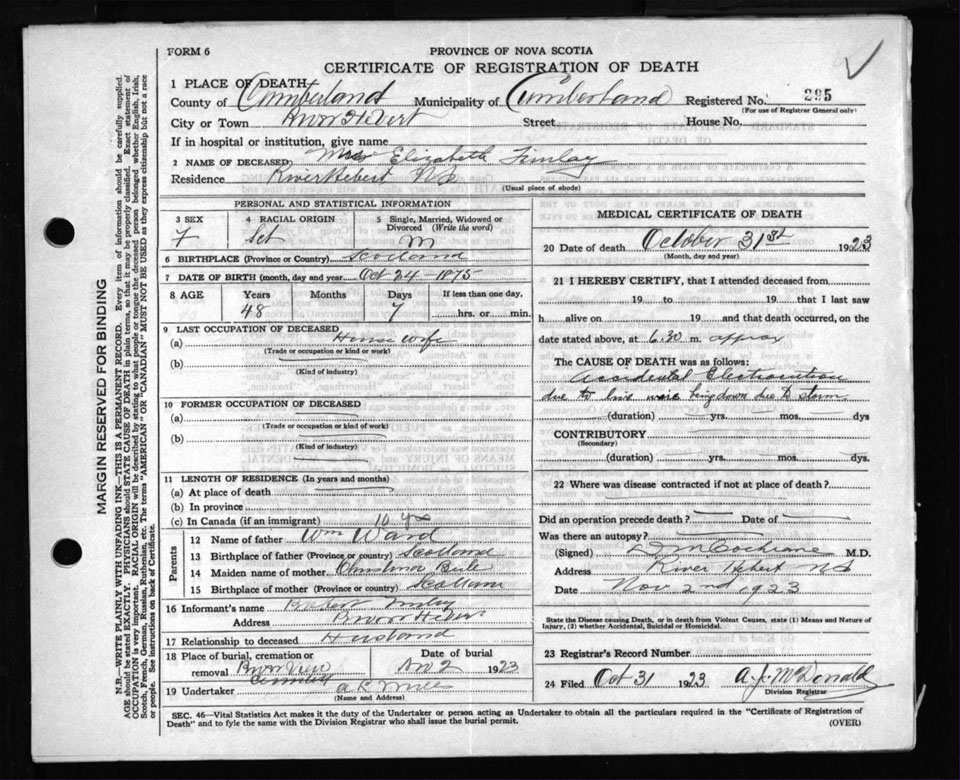 FORM 6
PROVINCE OF NOVA SCOTIA
CERTIFICATE OF REGISTRATION OF DEATH
1 PLACE OF DEATH
County of Cumberland Municipality of Cumberland Registered No. 285
(For use of Registrar General only)
City or Town River Hebert Street House No.
If in hospital or institution, give name
2 NAME OF DECEASED Elizabeth Finlay
Residence River Hebert N S
(Usual place of abode)
PERSONAL AND STATISTICAL INFORMATION
3 SEX 4 RACIAL ORIGIN 5 Single, Married, Widowed or
Divorced (Write the word)
F Sct M
6 BIRTHPLACE (Province or Country) Scotland
7 DATE OF BIRTH (month, day and year) Oct 24 - 1875
8 AGE Years Months Days If less than one day,
48 7 hrs. or min.
9 LAST OCCUPATION OF DECEASED
(a) House wife
(Trade or occupation or kind or work)
(b)
(Kind of industry)
10 FORMER OCCUPATION OF DECEASED
(a)
(Trade or occupation or kind of work)
(b)
(Kind of industry)
11 LENGTH OF RESIDENCE (In years and months)
(a) At place of death
(b) In province
(c) In Canada (if an immigrant) 10 yrs
Parents
12 Name of father Wm Ward
13 Birthplace of father (Province or country) Scotland
14 Maiden name of mother Christina
15 Birthplace of mother (Province or country)
16 Informant's name
Address River Hebert
17 Relationship to deceased Husband
18 Place of burial, cremation or Date of burial
removal River View Nov 2 1923
Cemetery
19 Undertaker
(Name and Address)
MEDICAL CERTIFICATE OF DEATH
20 Date of death October 31st 1923
(Month, day and year)
21 I HEREBY CERTIFY, that I attended deceased from
19 to 19 that I last saw
h alive on 19 and that death occurred, on
date stated above, at 6.30 m. approx
The CAUSE OF DEATH was as follows:
Accidental Electrocution
due to live wire being down due to storm
(duration) yrs. mos. dys
CONTRIBUTORY
(Secondary)
(duration) yrs. mos. dys
22 Where was disease contracted if not at place of death?
Did an operation precede death? Date of
Was there an autopsy?
(Signed) M Cochrane M.D.
Address River Hebert N S
Date Nov 2nd 1923
State the Disease Causing Death, or in death from Violent Causes, state (1) Means and Nature of
Injury, (2) whether Accidental, Suicidal or Homicidal.
23 Registrar's Record Number
24 Filed Oct 31 1923 A. J. McDonald
Division Registrar
SEC. 46—Vital Statistics Act makes it the duty of the Undertaker or person acting as Undertaker to obtain all the particulars required in the "Certificate of Registration of
Death" and to fyle the same with the Division Registrar who shall issue the burial permit.
(OVER)
MARGIN RESERVED FOR BINDING
N.B.—WRITE PLAINLY WITH UNFADING INK—THIS IS A PERMANENT RECORD. Every item of information should be carefully supplied.
AGE should be stated EXACTLY. PHYSICIANS should STATE CAUSE OF DEATH in plain terms, so that it may be properly classified. Exact statement of
OCCUPATION is very important. RACIAL ORIGIN will be described by stating to what people or tongue the deceased person belonged whether English, Irish,
Scotch, French, German, Russian, Ruthenian, etc. The terms "AMERICAN" OR "CANADIAN" MUST NOT BE USED as they express citizenship but not a race
or people. See instructions on back of Certificate.